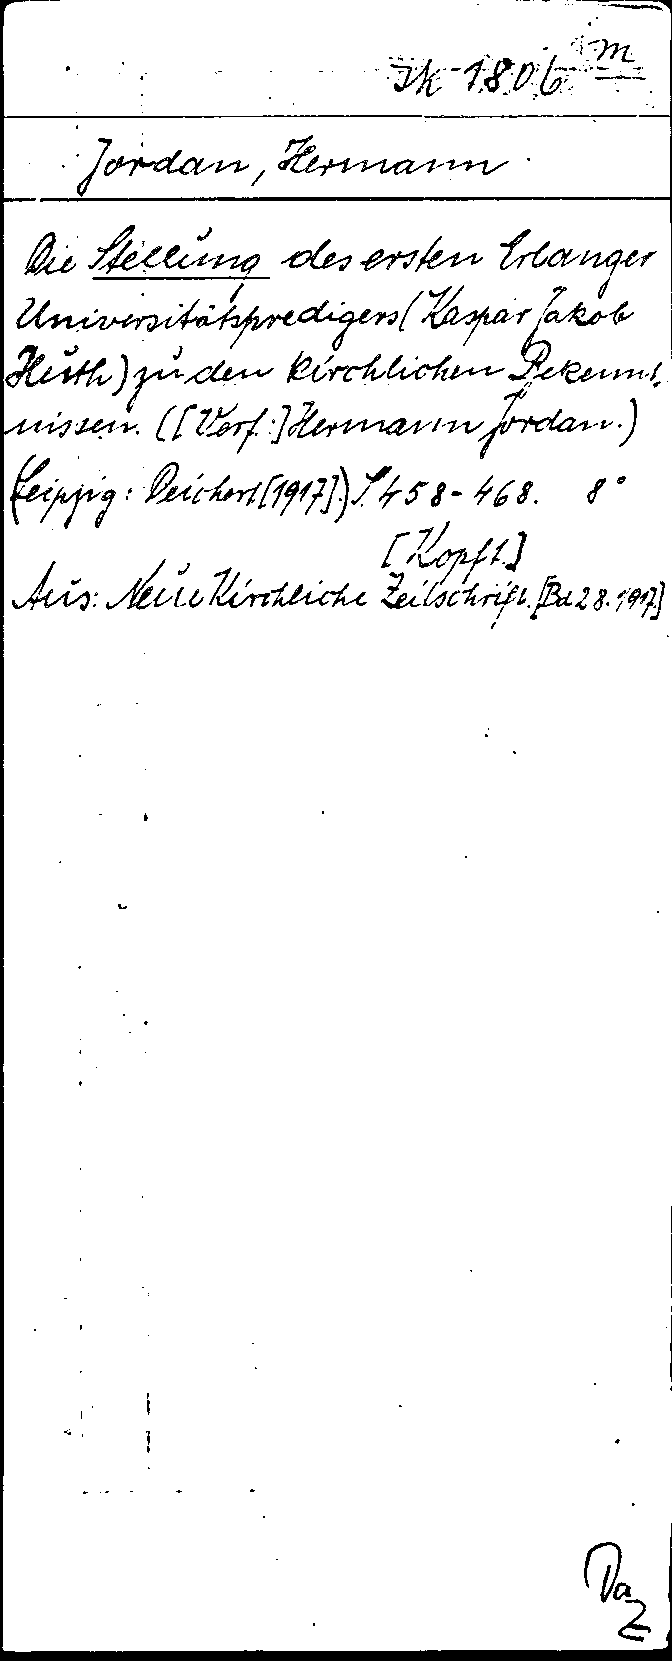 Jk 1806 m
Jordan, Hermann
Die Stellung des ersten Erlanger
Universitätspredigers (Kaspar Jakob
Huth) zu den kirchlichen Bekennt-
nissen. ([Verf.:] Hermann Jordan.)
(Leipzig: Deichert [1917].) S. 458-468. 8°
[Kopft.]
Aus: Neue Kirchliche Zeitschrift. [Bd 28. 1917]